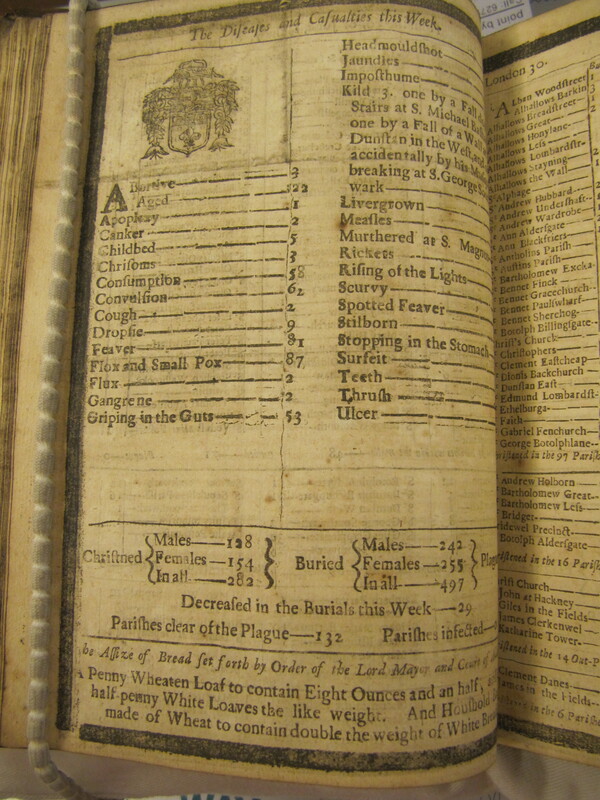 The Diseases and Casualties this Week.
Abortive 3
Aged 22
Apoplexy 1
Canker 2
Childbed 5
Chrisoms 3
Consumption 58
Convulsion 62
Cough 2
Dropsie 9
Feaver 81
Flox and Small Pox 87
Flux 2
Gangrene 2
Griping in the Guts 53
Headmouldshot
Jaundies
Imposthume
Kild 3. one by a Fall
Stairs at S. Michael
one by a Fall of a Wall
Dunstan in the West, and
accidentally by his
breaking at S. George
wark
Livergrown
Measles
Murthered at S. Magnus
Rickets
Rising of the Lights
Scurvy
Spotted Feaver
Stilborn
Stopping in the Stomach
Surfeit
Teeth
Thrush
Ulcer
Christned
Males 128
Females 154
In all 282
Buried
Males 242
Females 255
In all 497
Decreased in the Burials this Week 29
Parishes clear of the Plague 132 Parishes infected
The Assize of Bread set forth by Order of the Lord Mayor and Court of
A Penny Wheaten Loaf to contain Eight Ounces and an half,
half-penny White Loaves the like weight. And Houshold
made of Wheat to contain double the weight of White
London 30.
Alban Woodstreet
Alhallows Barking
Alhallows Breadstreet
Alhallows Great
Alhallows Honylane
Alhallows Less
Alhallows Lombardstr.
Alhallows Stayning
Alhallows the Wall
Alphage
Andrew Hubbard
Andrew Undershaft
Andrew Wardrobe
Ann Aldersgate
Ann Blackfriers
Antholins Parish
Austins Parish
Bartholomew Excha.
Bennet Finck
Bennet Gracechurch
Bennet Paulswharf
Bennet Sherehog
Botolph Billingsgate
Christophers
Clement Eastcheap
Dionis Backchurch
Dunstan East
Edmund Lombardst
Ethelburga
Faith
Gabriel Fenchurch
George Botolphlane
in the 97 Parish
Andrew Holborn
Bartholomew Great
Bartholomew Less
Bridget
Bridewel Precinct
Botolph Aldersgate
in the 16 Parish
Christ Church
John at Hackney
Giles in the Fields
James Clerkenwel
Katharine Tower
in the 14 Out-P
Clement Danes
in the Fields
in the 6 Parish